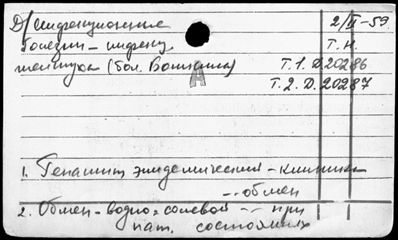 Д/ Инфекционные 2/VI-59
болезни - инфекц. Т. Н.
желтуха (бол. Боткина) Т.1. Д20286
А Т.2. Д.20287
1. Гепатит эпидемический - клиника
-„- обмен
2. Обмен - водно-солевой -„- при
пат. состояниях